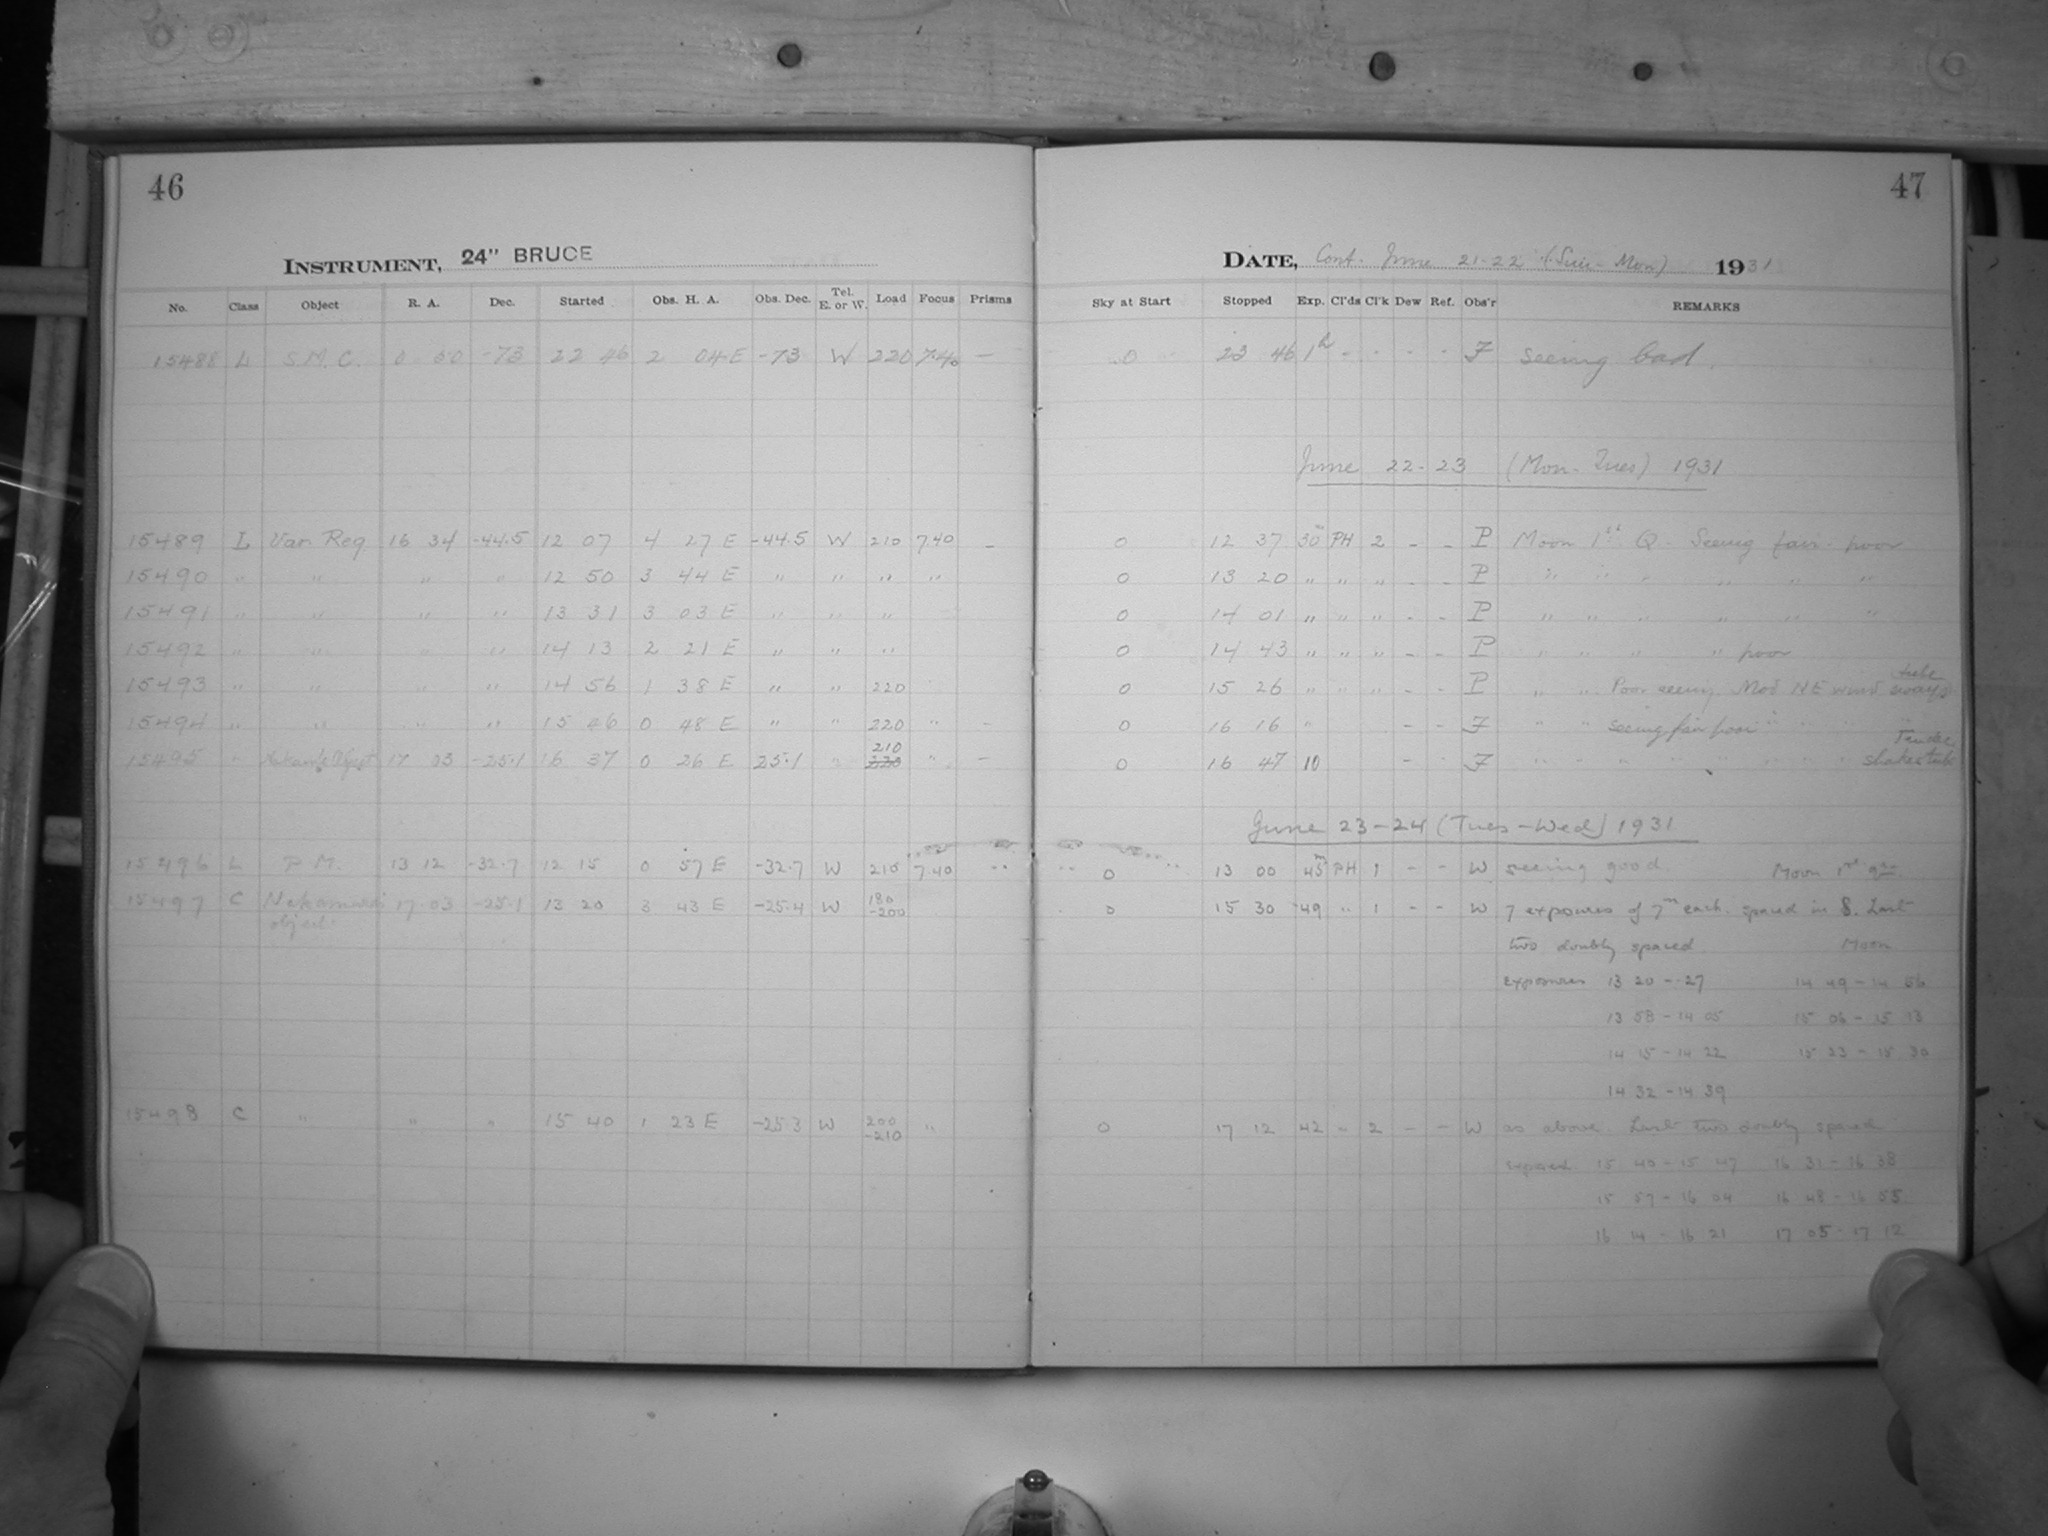 46
INSTRUMENT, 24" BRUCE
No. Class Object R. A. Dec. Started Obs. H. A. Obs. Dec. Tel. E. or W. Load Focus Prisms
15488 L S.M.C. 0 50 -73 22 46 2 04 E -73 W 220 7.40 —
15489 L Var Reg 16 34 -44.5 12 07 4 27 E -44.5 W 210 7.40 -
15490 " " " " 12 50 3 44 E " " " "
15491 " " " " 13 31 3 03 E " " "
15492 " " " " 14 13 2 21 E " " "
15493 " " " " 14 56 1 38 E " " 220
15494 " " " " 15 46 0 48 E " " 220 " -
15495 " 17 03 -25.1 16 37 0 26 E 25.1 " 210 " -
15496 L P.M. 13 12 -32.7 12 15 0 57 E -32.7 W 210 7.40 "
15497 C Nakamura 17.03 -25.1 13 20 3 43 E -25.4 W 180 -200
object
15498 C " " " 15 40 1 23 E -25.3 W 200 -210 "
47
DATE, Cont. June 21-22 (Sun-Mon) 1931
Sky at Start Stopped Exp. Cl'ds Cl'k Dew Ref. Obs'r REMARKS
0 23 46 1h - - - - F Seeing bad.
June 22-23 (Mon-Tues) 1931
0 12 37 30m PH 2 - - P Moon 1st Q. Seeing fair-poor
0 13 20 " " " - - P " " " " " "
0 14 01 " " " - - P " " " " " "
0 14 43 " " " - - P " " " " poor
0 15 26 " " " - - P " " Poor seeing. Mod NE wind sways tube
0 16 16 " - - F " " seeing fair poor " " " "
0 16 47 10 - - F " " " " " " " shakes tube
June 23-24 (Tues-Wed) 1931
0 13 00 45m PH 1 - - W seeing good. Moon 1st qr.
0 15 30 49 " 1 - - W 7 exposures of 7m each. spaced in S. Last
two doubly spaced. Moon.
exposures 13 20 - 27 14 49 - 14 56
13 58 - 14 05 15 06 - 15 13
14 15 - 14 22 15 23 - 15 30
14 32 - 14 39
0 17 12 42 - 2 - - W as above. Last two doubly spaced
exposed 15 40 - 15 47 16 31 - 16 38
15 57 - 16 04 16 48 - 16 55
16 14 - 16 21 17 05 - 17 12